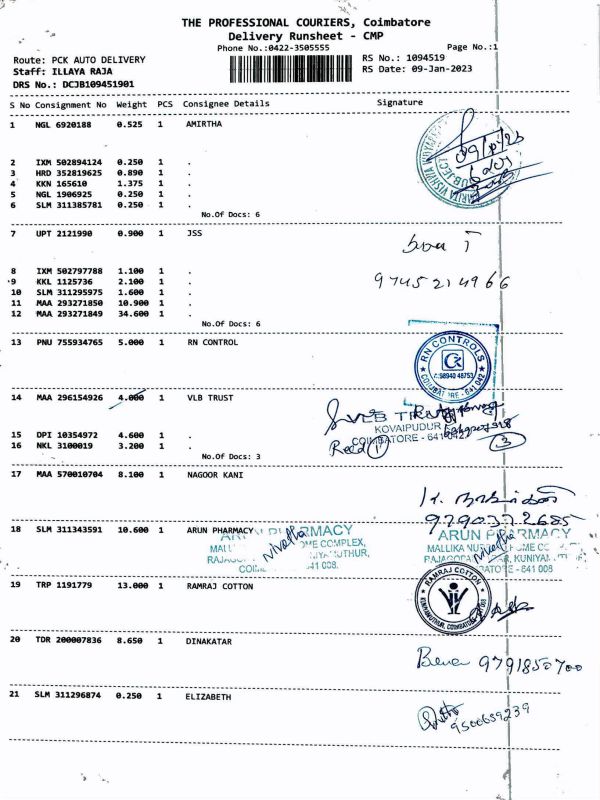 THE PROFESSIONAL COURIERS, Coimbatore
Delivery Runsheet - CMP
Phone No.:0422-3505555
Page No.:1
Route: PCK AUTO DELIVERY
RS No.: 1094519
Staff: ILLAYA RAJA
RS Date: 09-Jan-2023
DRS No.: DCJB109451901
S No Consignment No Weight PCS Consignee Details Signature
1 NGL 6920188 0.525 1 AMIRTHA
2 IXM 502894124 0.250 1 .
3 HRD 352819625 0.890 1 .
4 KKN 165610 1.375 1 .
5 NGL 1906925 0.250 1 .
6 SLM 311385781 0.250 1 .
No.Of Docs: 6
7 UPT 2121990 0.900 1 JSS
8 IXM 502797788 1.100 1 .
9 KKL 1125736 2.100 1 .
9745214966
10 SLM 311295975 1.600 1 .
11 MAA 293271850 10.900 1 .
12 MAA 293271849 34.600 1 .
No.Of Docs: 6
13 PNU 755934765 5.000 1 RN CONTROL
RN CONTROLS
98940 48753
COIMBATORE - 641 042
14 MAA 296154926 4.000 1 VLB TRUST
VLB TRUST
KOVAIPUDUR
15 DPI 10354972 4.600 1 .
COIMBATORE - 641 042
16 NKL 3100019 3.200 1 .
Recd 1
3
No.Of Docs: 3
17 MAA 570010704 8.100 1 NAGOOR KANI
9790372685
18 SLM 311343591 10.600 1 ARUN PHARMACY
ARUN PHARMACY
ARUN PHARMACY
Nivatha
19 TRP 1191779 13.000 1 RAMRAJ COTTON
RAMRAJ COTTON
20 TDR 200007836 8.650 1 DINAKATAR
9791850700
21 SLM 311296874 0.250 1 ELIZABETH
9500659239